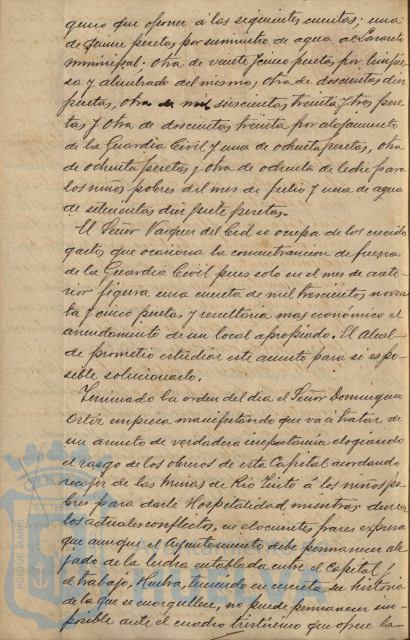 guno que oponer á las siguientes cuentas; una
de quince pesetas por suministro de agua al Lazareto
municipal. otra de veinte y cinco pesetas por limpie
sa y alumbrado del mismo, otra de doscientas diez
pesetas, otra mil seiscientas treinta y tres pese
tas y otra de doscientas treinta por alojamiento
de la Guardia Civil y una de ochenta pesetas, otra
de ochenta pesetas y otra de ochenta de leche para
los niños pobres del mes de Julio y una de agua
de setecientas diez y siete pesetas.
El Señor Vazquez del Cid se ocupa de los crecidos
gastos que ocasiona la concentracion de fuerza
de la Guardia Civil pues solo en el mes de ante
rior figura una cuenta de mil trescientas noven
ta y cinco pesetas, y resultaria mas económico el
arrendamiento de un local apropiado. El Alcal
de prometió estudiar este asunto para si es po
sible solucionarlo.
Terminado la orden del dia el Señor Dominguez
Ortiz empieza manifestando que va á tratar de
un asunto de verdadera importancia elogiando
el rasgo de los obreros de esta Capital acordando
recojer de las Minas de Rio Tinto á los niños po
bres para darle Hospitalidad mientras duren
los actuales conflictos, en elocuentes frases expresa
que aunque el Ayuntamiento debe permanecer ale
jado de la lucha entablada entre el Capital y
el trabajo, Huelva, teniendo en cuenta su historia
de la que se enorgullece, no puede permanecer im
posible ante el cuadro tristísimo que ofrece la